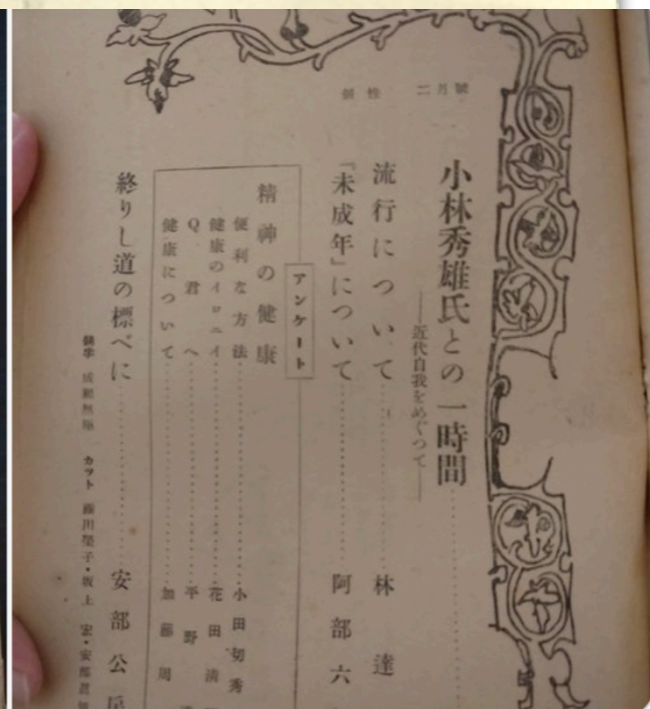 個性　二月號
小林秀雄氏との一時間
――近代自我をめぐつて――
流行について 林 達
『未成年』について 阿部六
アンケート
精神の健康
便利な方法 小田切秀
健康のイロニイ 花田清
Q君へ 平野
健康について 加藤周
終りし道の標べに 安部公房
カツト
坂上 宏・安部眞知